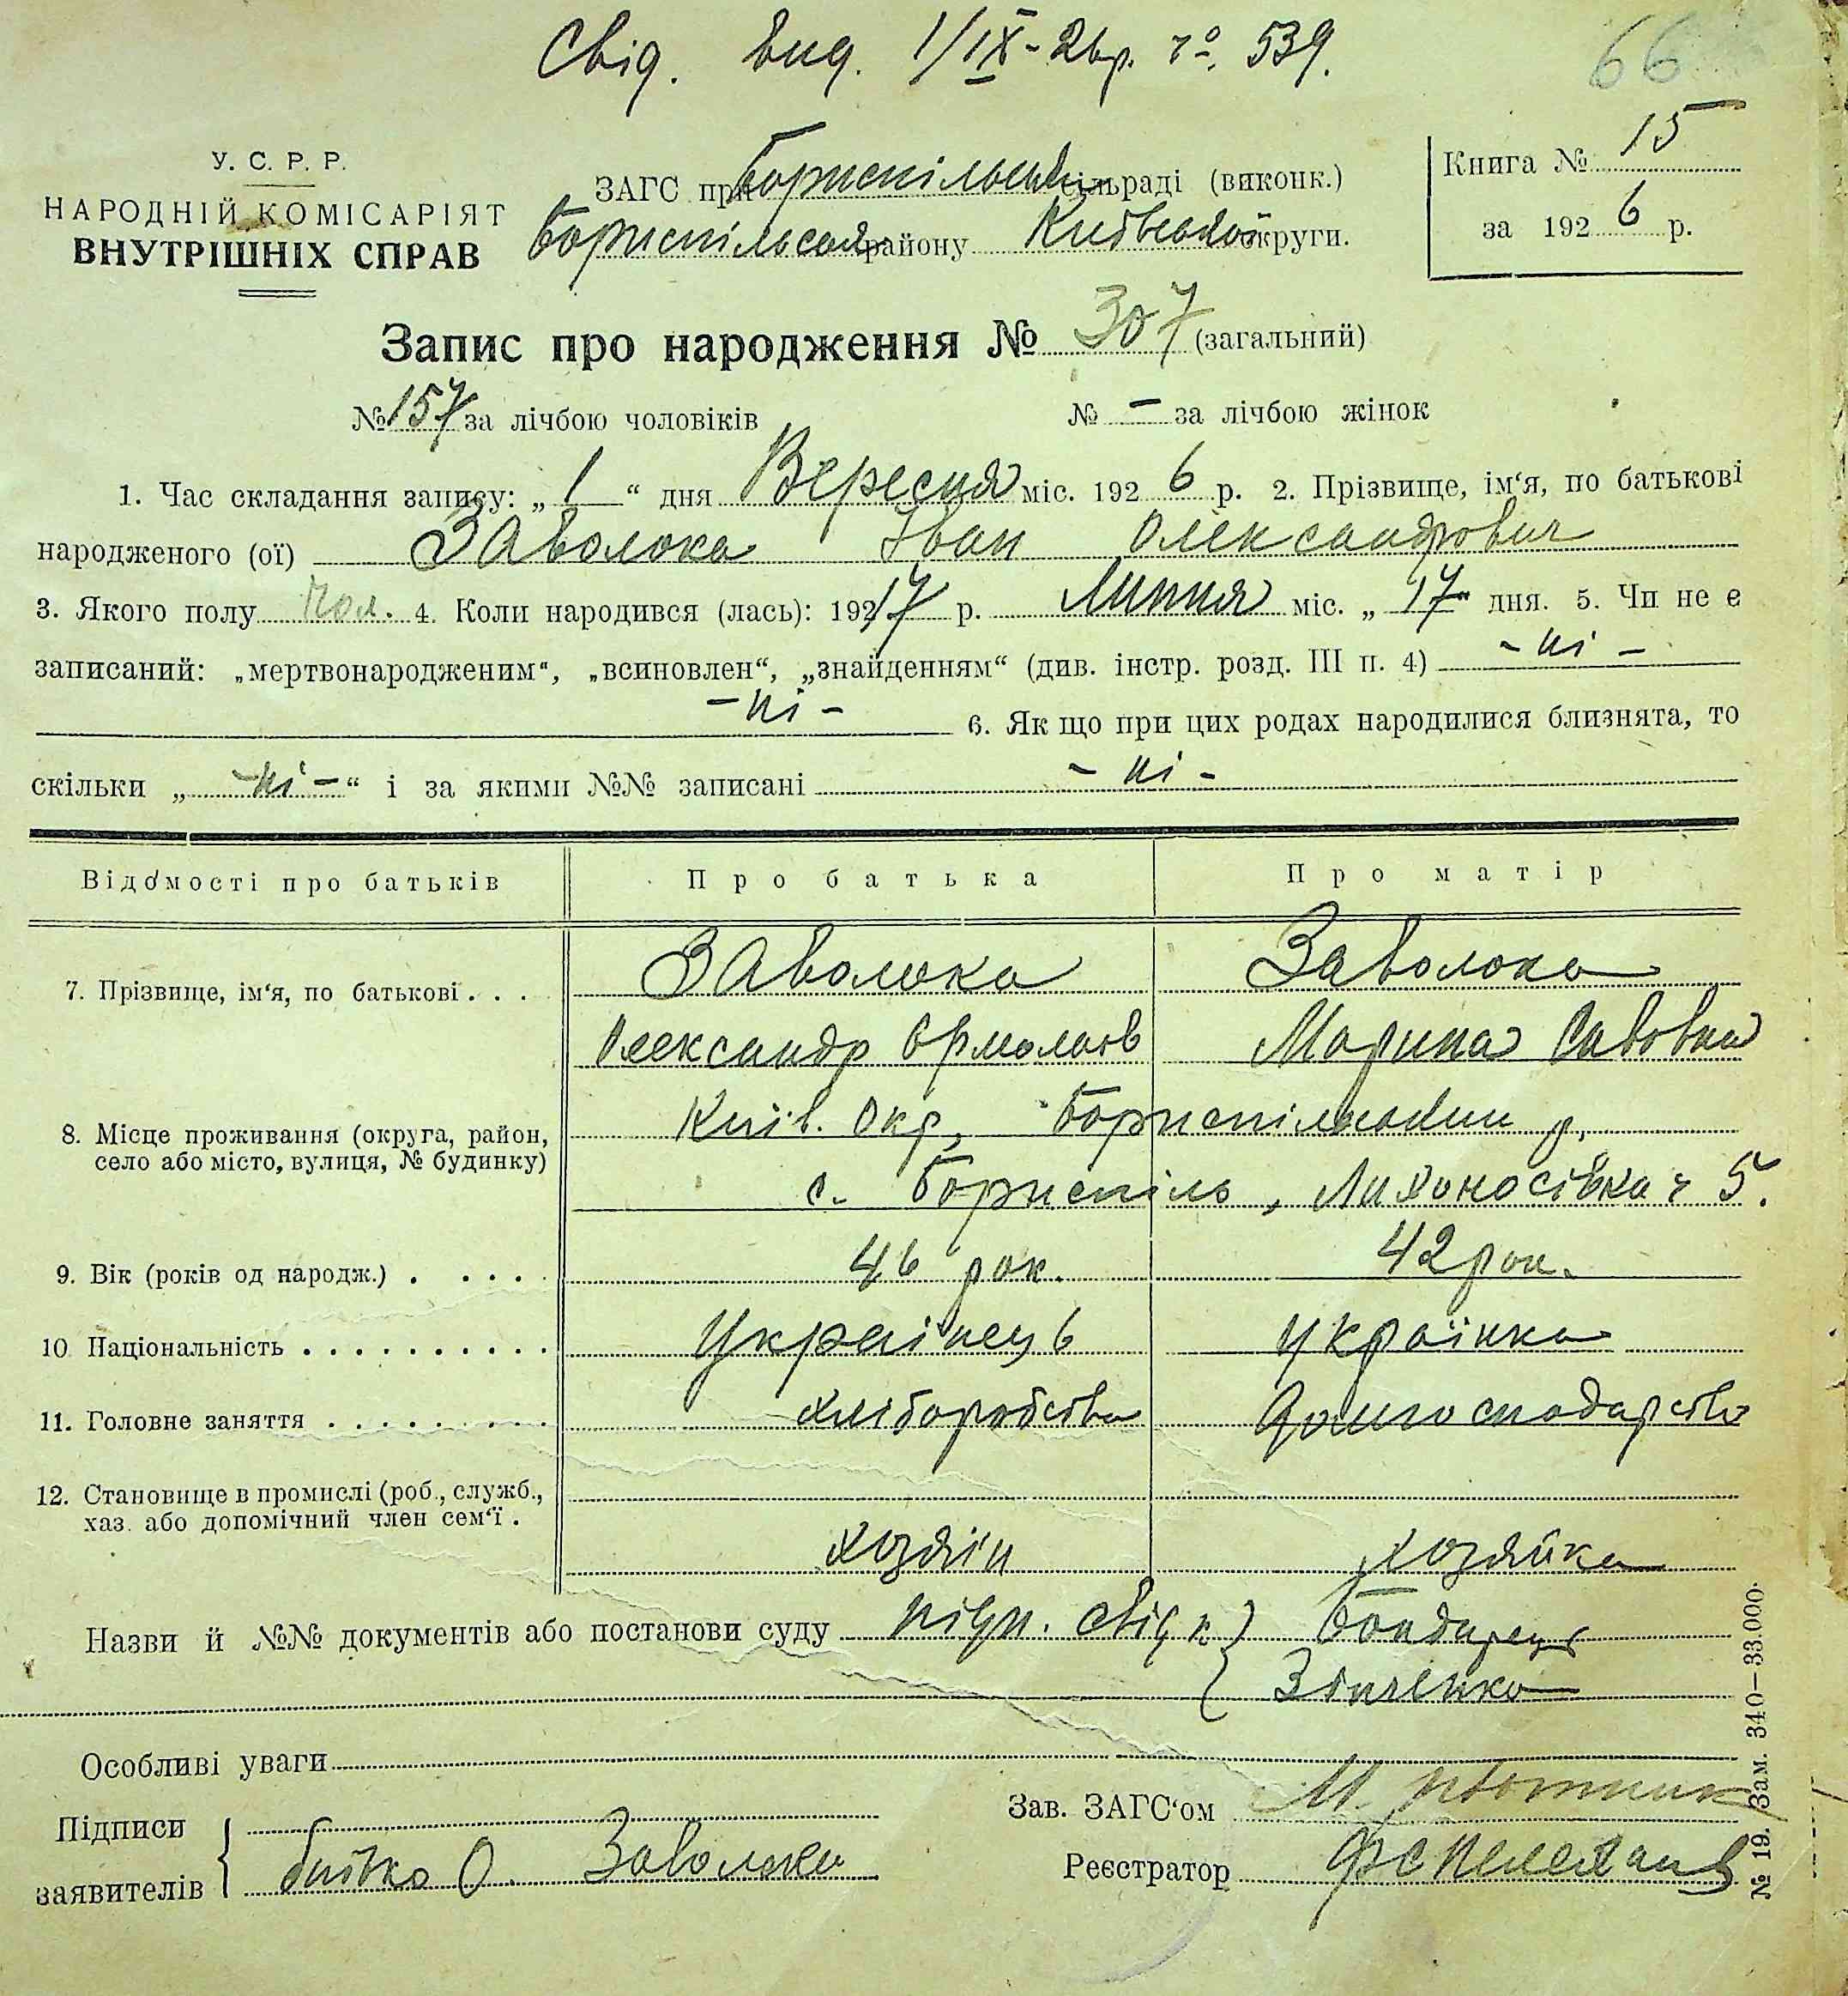 Свід. вид. 1/IX-26р. № 539.
66
У. С. Р. Р.
НАРОДНІЙ КОМІСАРІЯТ
ВНУТРІШНІХ СПРАВ
ЗАГС при Бориспільській сільраді (виконк.)
Бориспільськ району Київської округи.
Книга № 15
за 1926 р.
Запис про народження № 307 (загальний)
№ 157 за лічбою чоловіків № — за лічбою жінок
1. Час складання запису: „1“ дня Вересня міс. 1926 р. 2. Прізвище, ім‘я, по батькові
народженого (ої) Заволока Іван Олександрович
3. Якого полу Чол. 4. Коли народився (лась): 1917 р. Липня міс. „17“ дня. 5. Чи не є
записаний: „мертвонародженим“, „всиновлен“, „знайденням“ (див. інстр. розд. III п. 4) - ні -
- ні - 6. Як що при цих родах народилися близнята, то
скільки „- ні -“ і за якими №№ записані - ні -
Відомості про батьків Про батька Про матір
7. Прізвище, ім‘я, по батькові . . . Заволока Заволока
Олександр Єрмолаєв Марина Савовна
8. Місце проживання (округа, район, село або місто, вулиця, № будинку) Київ. Окр, Бориспільський р.
с. Бориспіль, Лихоносівка ч 5.
9. Вік (років од народж.) . . . . . 46 рок. 42 рок.
10 Національність . . . . . . . . . . Українець Українка
11. Головне заняття . . . . . . . . . хліборобство домгосподарство
12. Становище в промислі (роб., служб.,
хаз. або допомічний член сем‘ї . хозяін хозяйка
Назви й №№ документів або постанови суду підп. свідк } Бондарець
{ Зінченко
Особливі уваги
Підписи
заявителів { батько О. Заволока
Зав. ЗАГС‘ом М.
Реєстратор
№ 19. Зам. 340—33.000.